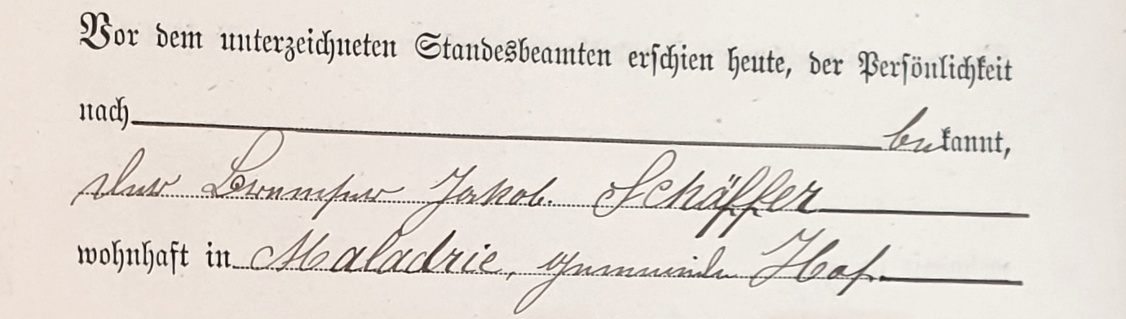 Vor dem unterzeichneten Standesbeamten erschien heute, der Persönlichkeit
nach bekannt,
der Bremser Jakob Schäffer
wohnhaft in Maladrie, Gemeinde Hof.